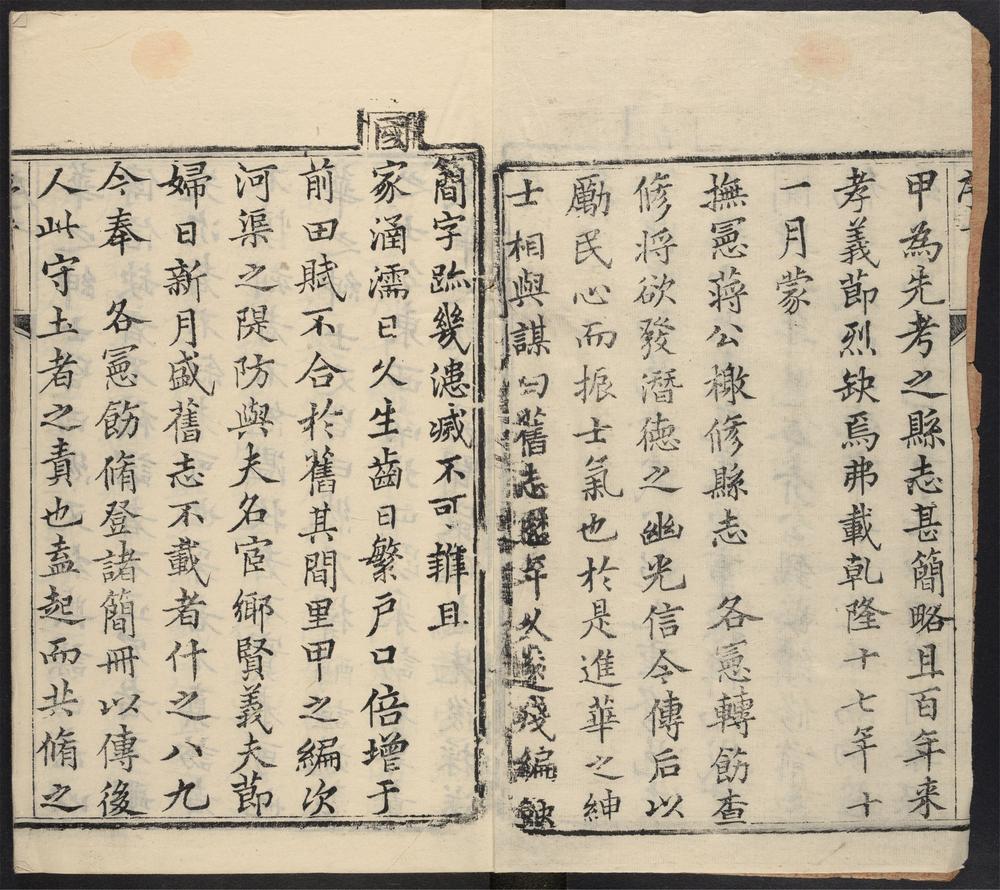 甲為先考之縣志甚簡略且百年来
孝義節烈缺焉弗載乹隆十七年十
一月蒙
撫憲蔣公檄修縣志 各憲轉飭查
修将欲發潛德之幽光信今傳后以
勵民心而振士氣也於是進華之紳
士相與謀曰舊志歷年久遠殘編蝕
簡字跡幾漶滅不可辨且
國
家涵濡日久生齒日繁戶口倍增于
前田賦不合於舊其間里甲之編次
河渠之隄防與夫名宦鄉賢義夫節
婦日新月盛舊志不載者什之八九
今奉 各憲飭脩登諸簡冊以傳後
人此守土者之責也盍起而共脩之